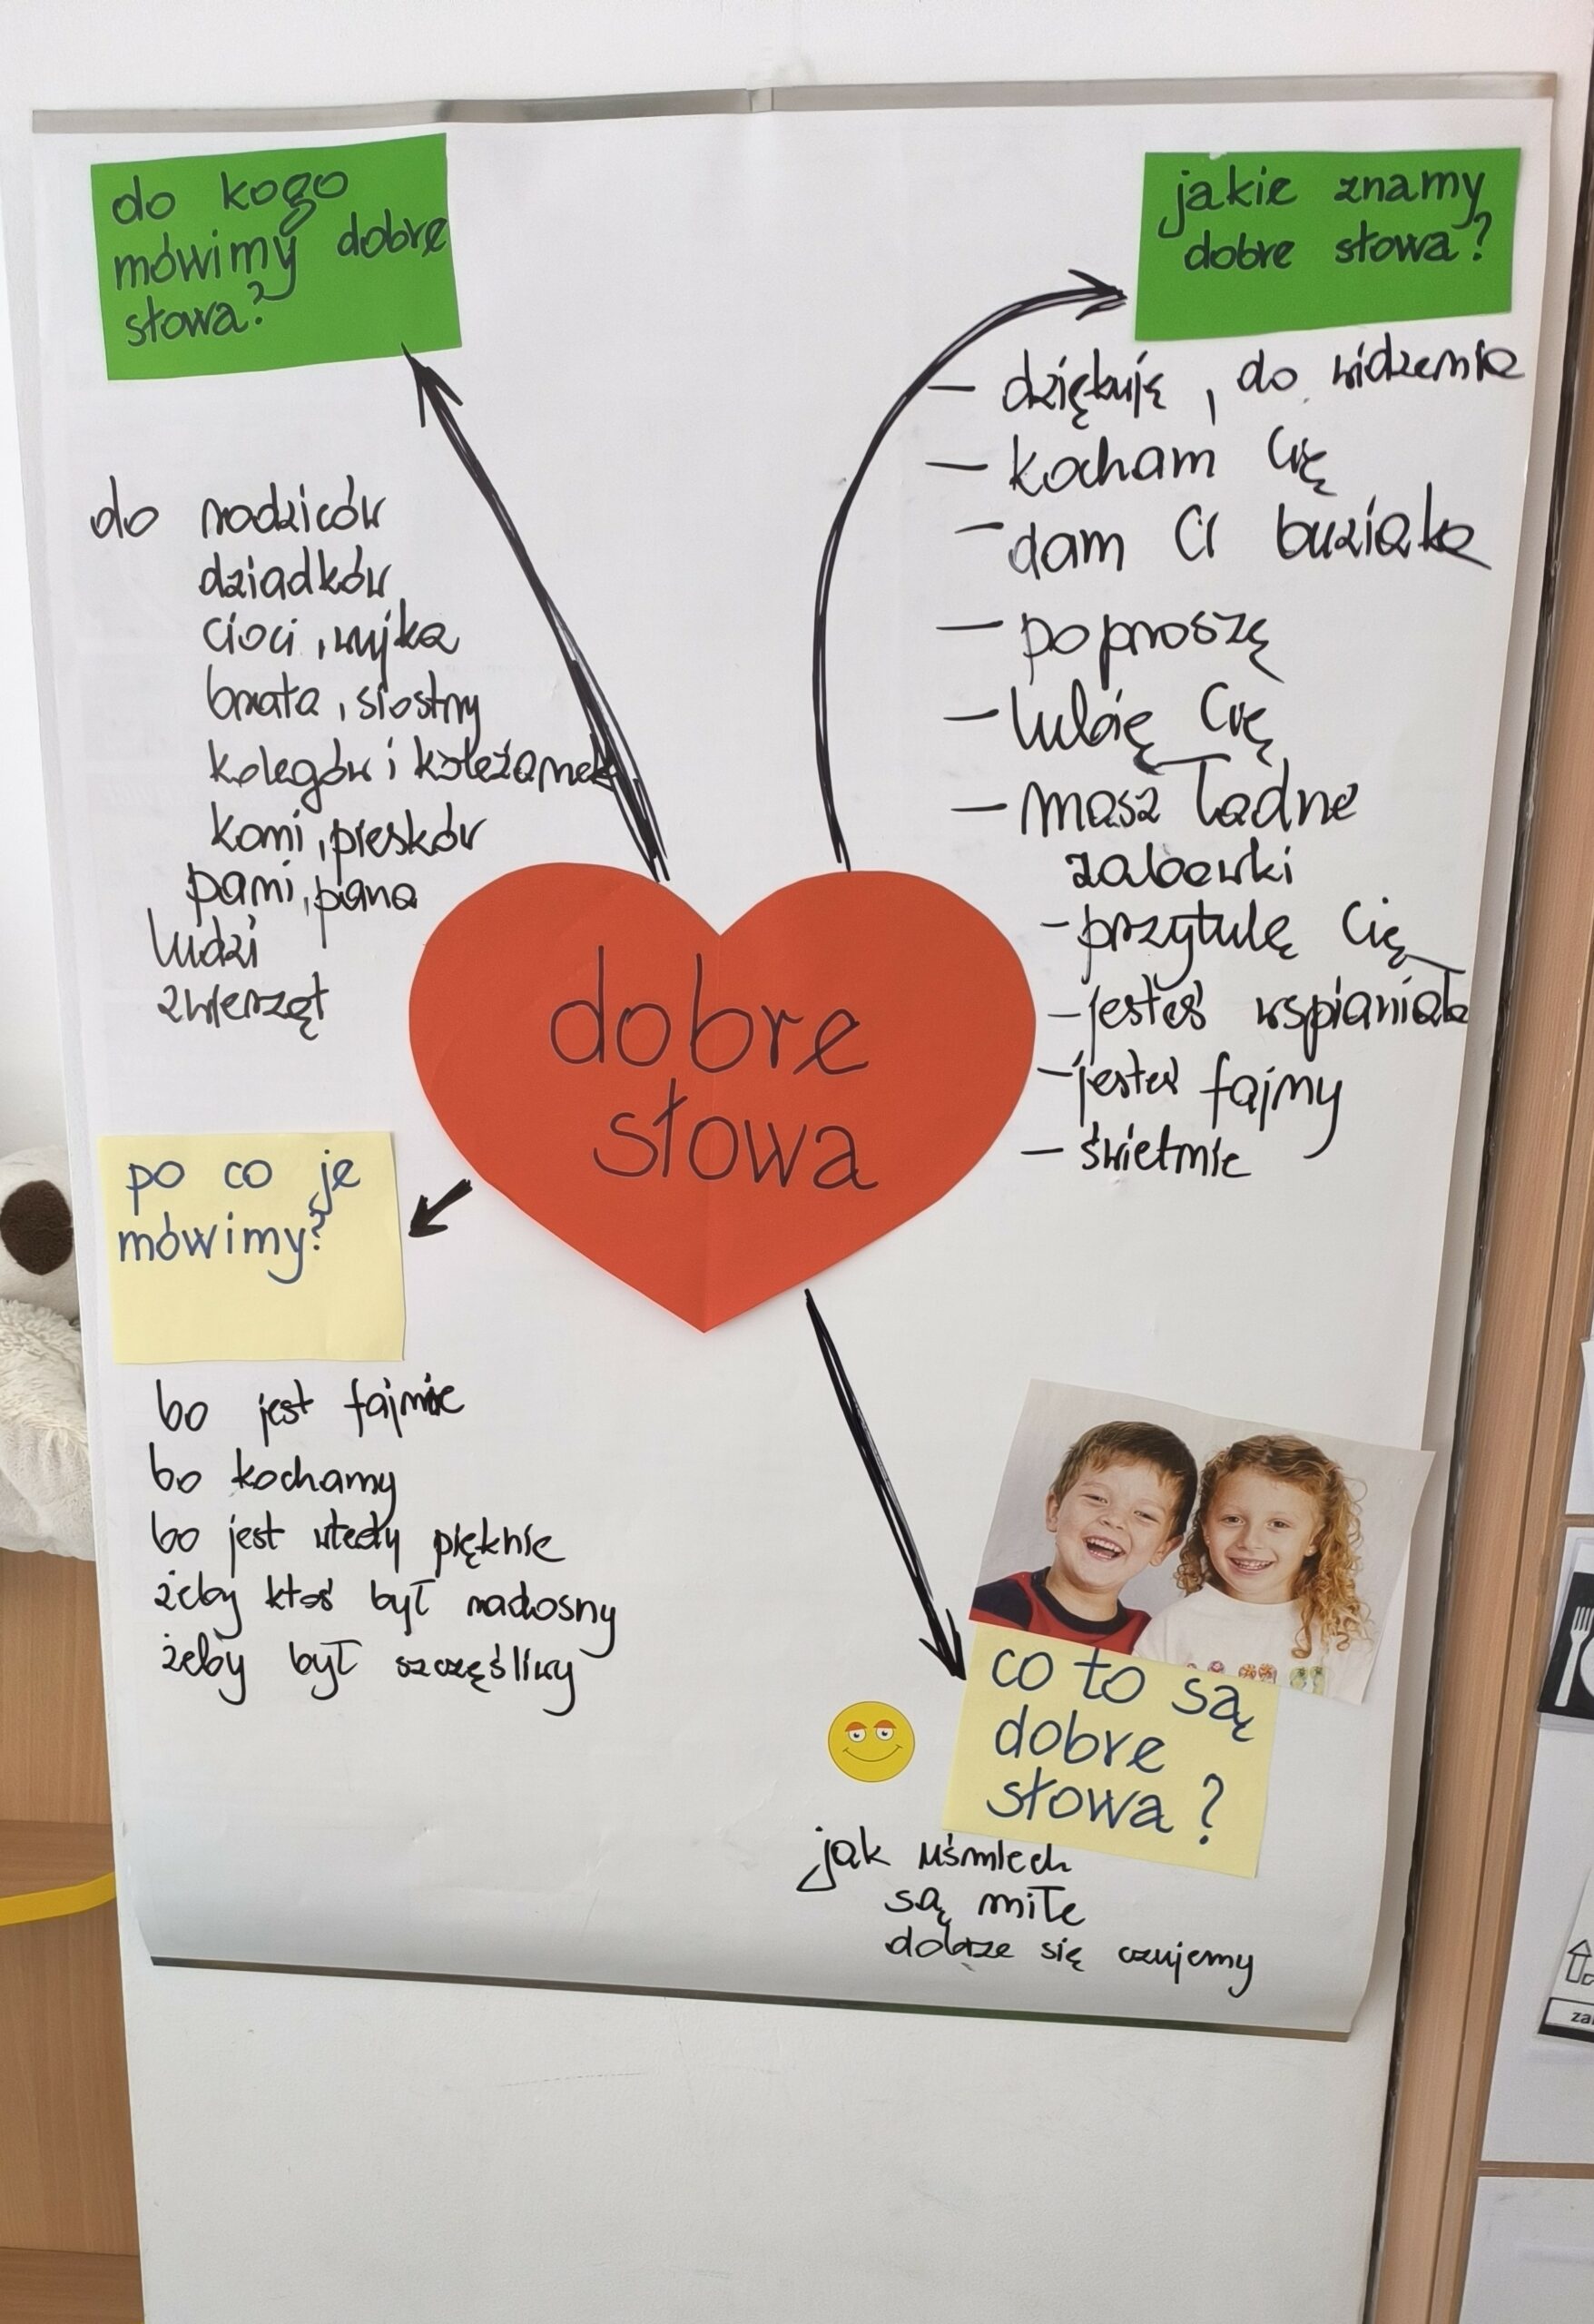 do kogo
mówimy dobre
słowa?
do rodziców
dziadków
cioci, wujka
brata, siostry
kolegów i koleżanek
pani, piesków
pani, pana
ludzi
zwierząt
jakie znamy
dobre słowa?
- dziękuję, do widzenia
- kocham Cię
- dam Ci buziaka
- poproszę
- lubię Cię
- masz ładne
zabawki
- przytulę Cię
- jesteś wspaniała
- jesteś fajny
- świetnie
dobre
słowa
po co je
mówimy?
bo jest fajnie
bo kochamy
bo jest wtedy pięknie
żeby ktoś był radosny
żeby był szczęśliwy
co to są
dobre
słowa?
jak uśmiech
są miłe
dobrze się czujemy